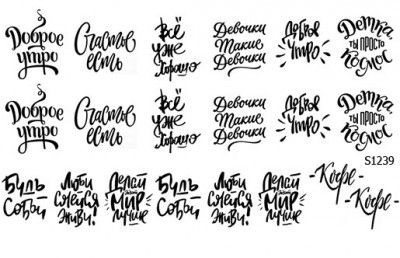 Доброе
утро
Счастье
есть
Всё
уже
хорошо
Девочки
Такие
Девочки
Доброе
Утро
Детка,
ты просто
Космос
Доброе
утро
Счастье
есть
Всё
уже
хорошо
Девочки
Такие
Девочки
Доброе
Утро
Детка,
ты просто
Космос
S1239
Будь
собой
Люби
Смейся
Живи!
Делай
Мир
лучше
Будь
собой
Люби
Смейся
Живи!
Делай
Мир
лучше
-Кофе-
-Кофе-